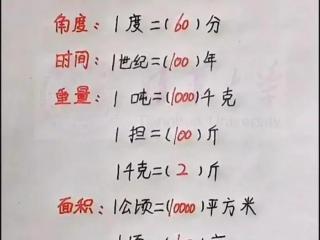 角度: 1度=(60)分
时间: 1世纪=(100)年
重量: 1吨=(1000)千克
1担=(100)斤
1千克=(2)斤
面积: 1公顷=(10000)平方米